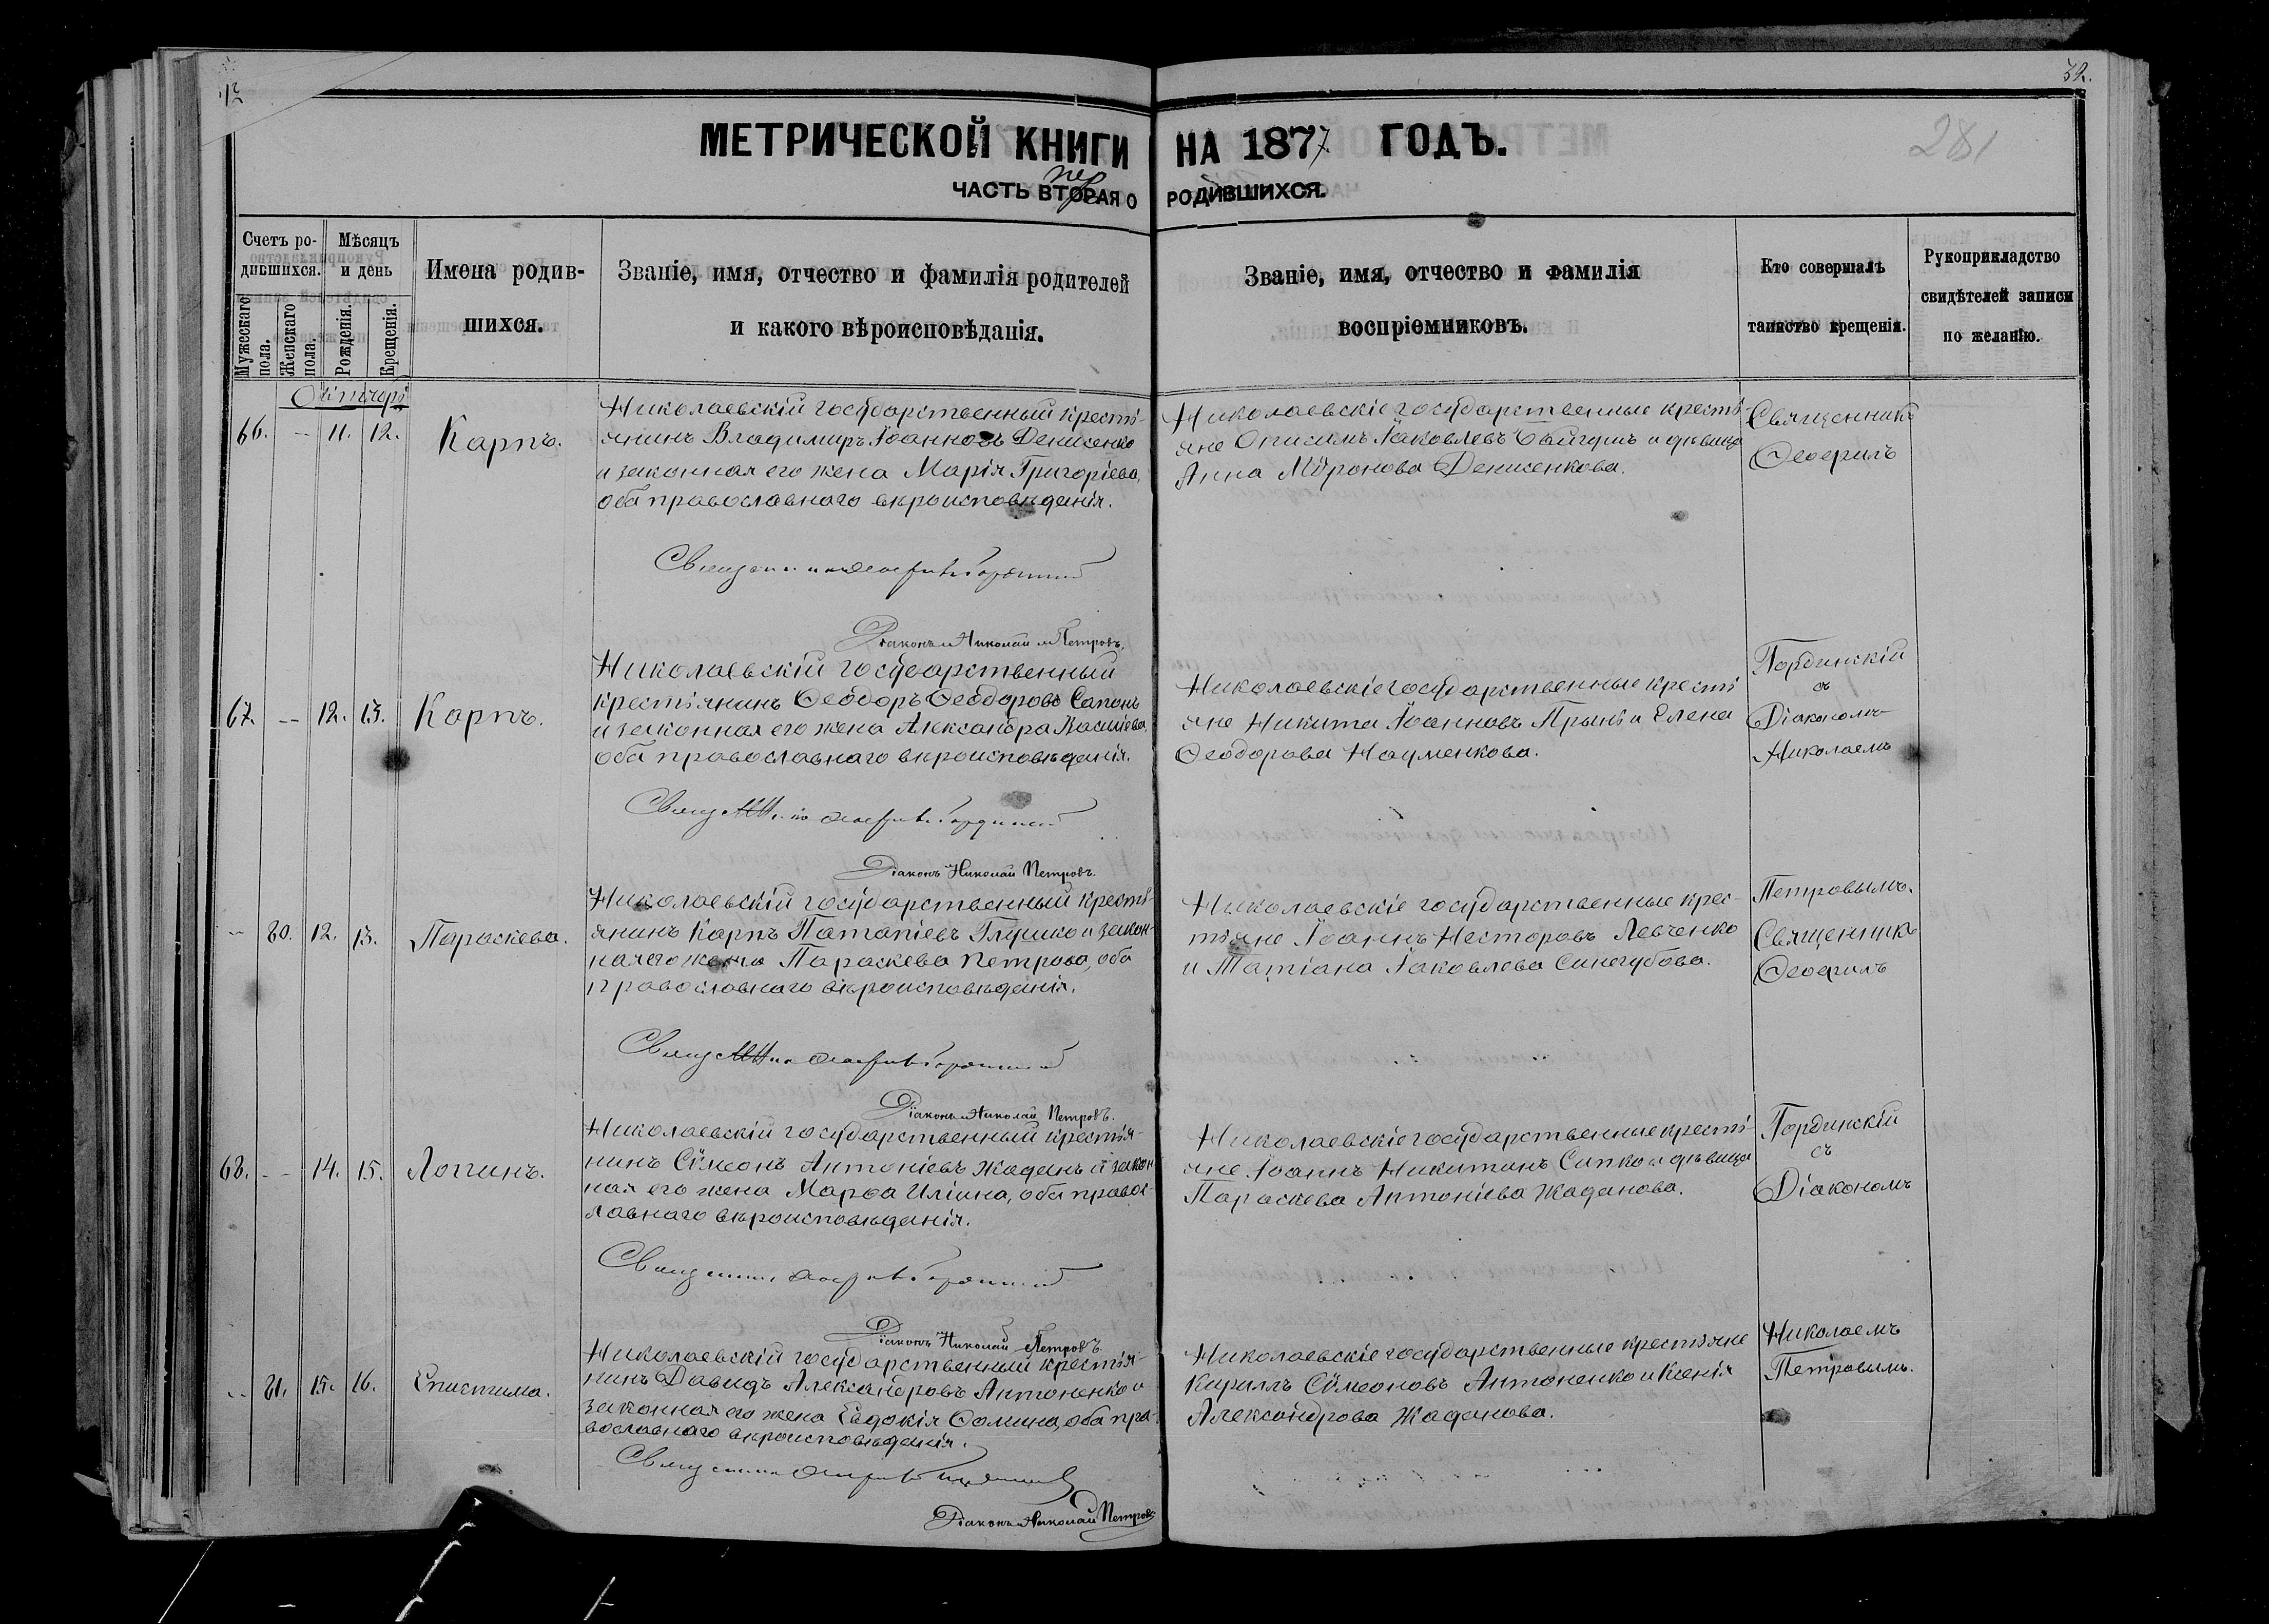 32.
МЕТРИЧЕСКОЙ КНИГИ НА 1877 ГОДЪ.
281
ЧАСТЬ ВТОРАЯ О РОДИВШИХСЯ.
пер
Счетъ ро-
дившихся.
Мужескаго пола.
Женскаго пола.
Мѣсяцъ
и день
Рожденія.
Крещенія.
Имена родив-
шихся.
Званіе, имя, отчество и фамилія родителей
и какого вѣроисповѣданія.
Званіе, имя, отчество и фамилія
воспріемниковъ.
Кто совершалъ
таинство крещенія.
Рукоприкладство
свидѣтелей записи
по желанію.
66. -- 11. 12. Карпъ.
Николаевскій государственный крестъ-
янинъ Владимиръ Іоанновъ Денисенко
и законная его жена Марія Григоріева,
оба православнаго вѣроисповѣданія.
Діаконъ Николай Петровъ.
Николаевскіе государственные крестъ-
яне Онисимъ Іаковлевъ и дѣвица
Анна Мѵронова Денисенкова.
Священникъ
Ѳеофилъ
67. -- 12. 13. Карпъ.
Николаевскій государственный
крестьянинъ Ѳеодоръ Ѳеодоровъ Сапонъ
и законная его жена Александра Василіева,
оба православнаго вѣроисповѣданія.
Діаконъ Николай Петровъ.
Николаевскіе государственные кресть
яне Никита Іоанновъ и Елена
Ѳеодорова Науменкова.
Гординскій
съ
Діакономъ
Николаемъ
-- 80. 12. 13. Параскева.
Николаевскій государственный кресть-
янинъ Карпъ Патапіевъ и закон-
ная его жена Параскева Петрова, оба
православнаго вѣроисповѣданія.
Діаконъ Николай Петровъ.
Николаевскіе государственные крес-
тьяне Іоаннъ Несторовъ Левченко
и Татіана Іаковлева Синегубова.
Петровымъ.
Священникъ
Ѳеофилъ
68. -- 14. 15. Логгинъ.
Николаевскій государственный крестья-
нинъ Сѵмеонъ Антоніевъ Жаданъ и закон
ная его жена Марѳа Иліина, оба правос-
лавнаго вѣроисповѣданія.
Діаконъ Николай Петровъ.
Николаевскіе государственные кресть-
яне Іоаннъ Никитинъ Сипко и дѣвица
Параскева Антоніева Жаданова.
Гординскій
съ
Діакономъ
-- 81. 15. 16. Епистима.
Николаевскій государственный крестья-
нинъ Давидъ Александровъ Антоненко и
законная его жена Евдокія Ѳомина, оба пра-
вославнаго вѣроисповѣданія.
Діаконъ Николай Петровъ
Николаевскіе государственные крестьяне
Кириллъ Сѵмеоновъ Антоненко и Ксенія
Александрова Жаданова.
Николаемъ
Петровымъ.